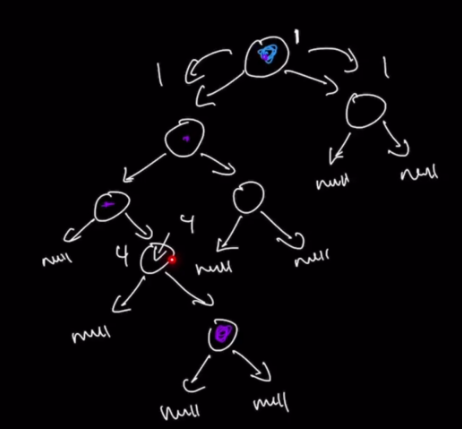 1
1 1
null null
4
null 4 null null
null
null null